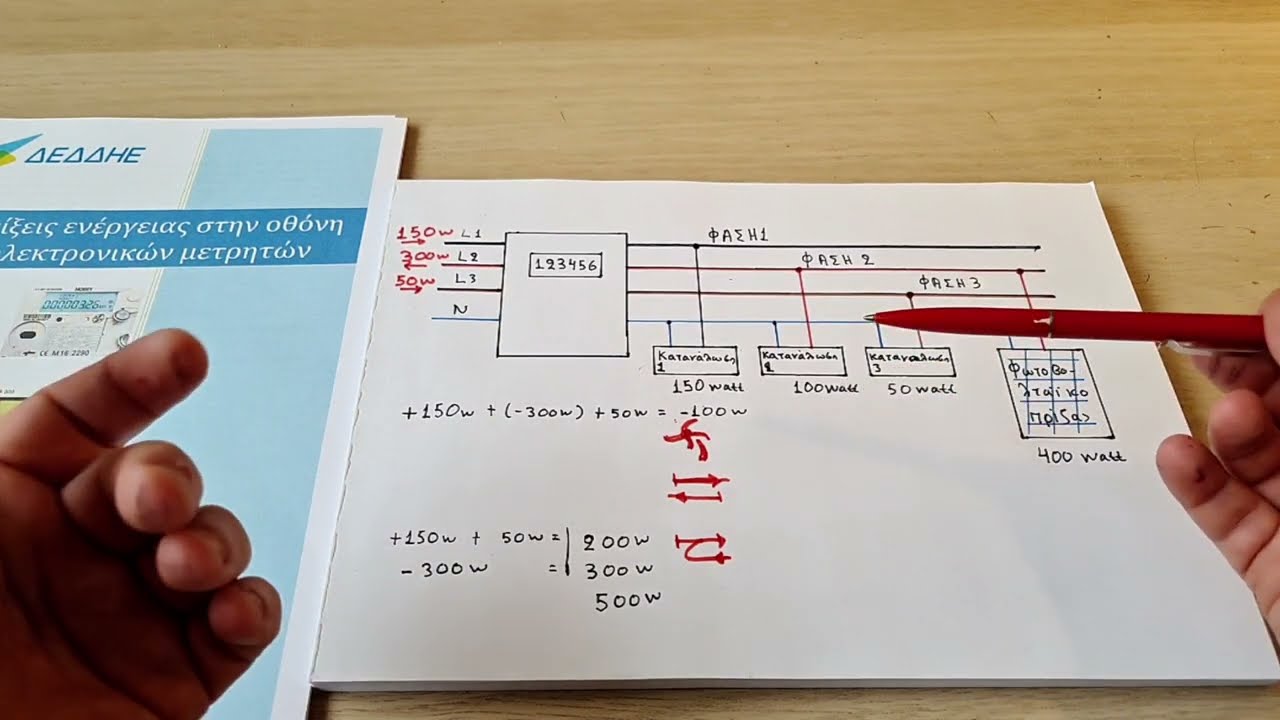 ΔΕΔΔΗΕ
ίξεις ενέργειας στην οθόνη
λεκτρονικών μετρητών
00000326
CE M16 2290
150w L1
300w L2
50w L3
N
123456
ΦΑΣΗ1
ΦΑΣΗ 2
ΦΑΣΗ 3
Κατανάλωση
1
150 watt
2
100watt
Κατανάλωση
3
50 watt
Φωτοβο-
λταϊκο
πρίζας
400 watt
+150w + (-300w) + 50w = -100w
+150w + 50w = 200w
-300w = 300w
500w